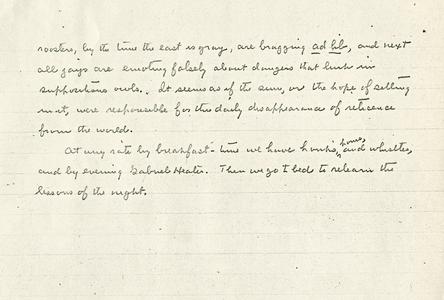 roosters, by the time the east is gray, are bragging ad lib, and next
all jays are emoting falsely about dangers that lurk in
suppositious owls.. It seems as if the sun, or the hope of selling
must, were responsible for the daily disappearance of reticence
from the world.
At any rate by breakfast-time we have honks, horns, and whistles,
and by evening Gabriel Heater. Then we go to bed to relearn the
lessons of the night.